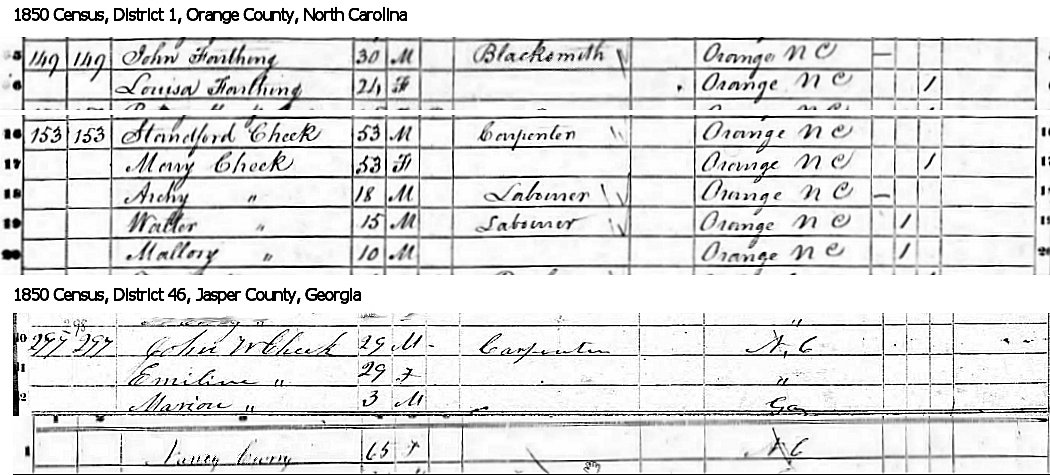 1850 Census, District 1, Orange County, North Carolina
149 149 John Farthing 30 M Blacksmith Orange N C
6 Louisa Farthing 24 F Orange N C 1
16 153 153 Standford Cheek 53 M Carpenter Orange N C
17 Mary Cheek 53 F Orange N C 1
18 Archy " 18 M Labourer Orange N C
19 Walter " 15 M Labourer Orange N C 1
20 Mallory " 10 M Orange N C 1
1850 Census, District 46, Jasper County, Georgia
298
297 297 John W Cheek 29 M Carpenter N. C
Emiline " 29 F "
2 Marion " 3 M Ga
1 Nancy Curry 65 F N C